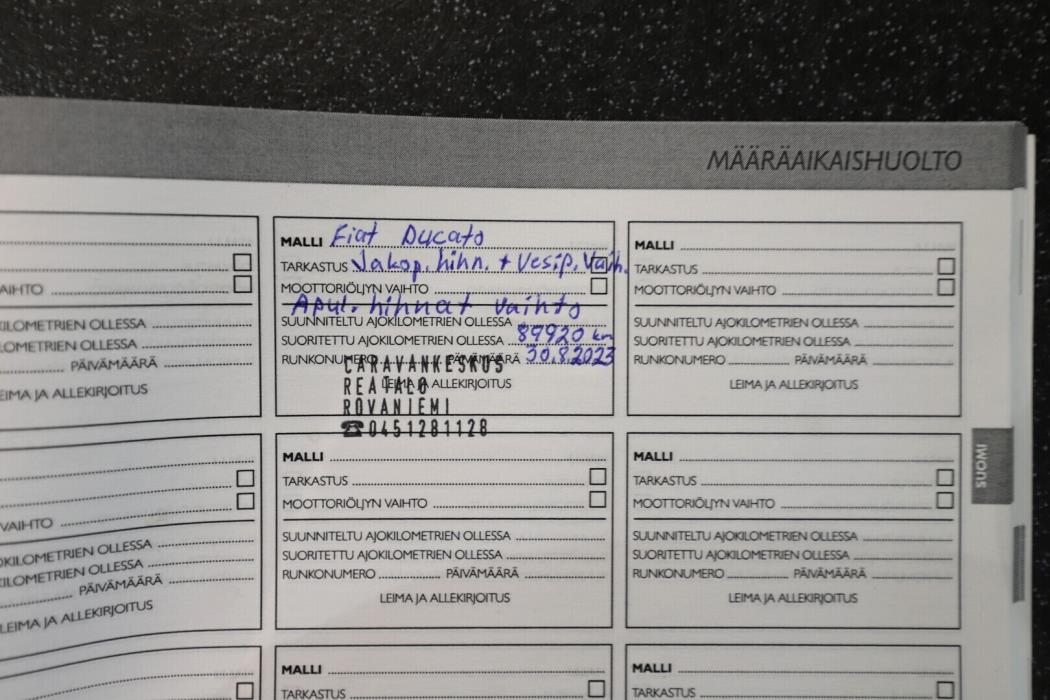 MÄÄRÄAIKAISHUOLTO
VAIHTO
KILOMETRIEN OLLESSA
LOMETRIEN OLLESSA
PÄIVÄMÄÄRÄ
LEIMA JA ALLEKIRJOITUS
MALLI Fiat Ducato
TARKASTUS Jakop. hihn. + Vesip. Vaih.
MOOTTORIÖLJYN VAIHTO
Apul. hihnat vaihto
SUUNNITELTU AJOKILOMETRIEN OLLESSA
SUORITETTU AJOKILOMETRIEN OLLESSA 89920 km
RUNKONUMERO PÄIVÄMÄÄRÄ 30.8.2023
LEIMA JA ALLEKIRJOITUS
CARAVANKESKUS
REATALO
ROVANIEMI
☎0451281128
MALLI
TARKASTUS
MOOTTORIÖLJYN VAIHTO
SUUNNITELTU AJOKILOMETRIEN OLLESSA
SUORITETTU AJOKILOMETRIEN OLLESSA
RUNKONUMERO PÄIVÄMÄÄRÄ
LEIMA JA ALLEKIRJOITUS
SUOMI
VAIHTO
OKILOMETRIEN OLLESSA
KILOMETRIEN OLLESSA
PÄIVÄMÄÄRÄ
LEIMA JA ALLEKIRJOITUS
MALLI
TARKASTUS
MOOTTORIÖLJYN VAIHTO
SUUNNITELTU AJOKILOMETRIEN OLLESSA
SUORITETTU AJOKILOMETRIEN OLLESSA
RUNKONUMERO PÄIVÄMÄÄRÄ
LEIMA JA ALLEKIRJOITUS
MALLI
TARKASTUS
MOOTTORIÖLJYN VAIHTO
SUUNNITELTU AJOKILOMETRIEN OLLESSA
SUORITETTU AJOKILOMETRIEN OLLESSA
RUNKONUMERO PÄIVÄMÄÄRÄ
LEIMA JA ALLEKIRJOITUS
MALLI
TARKASTUS
MALLI
TARKASTUS